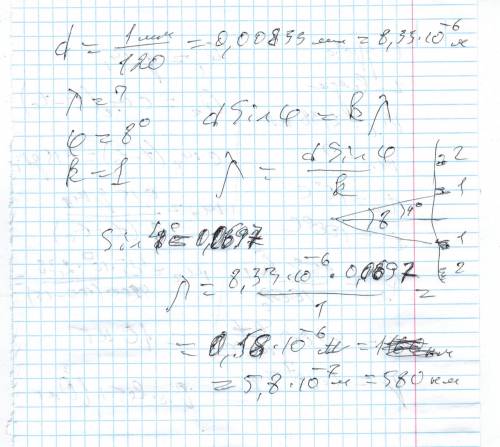 d = 1мм/120 = 0,00833 мм = 8,33·10⁻⁶ м
λ = ?
φ = 8°
k = 1
d sin φ = k λ
λ = d sin φ / k
2
1
8 4°
1
2
Sin 4° = 0,0697
λ = 8,33·10⁻⁶ · 0,0697 / 1 =
= 0,58·10⁻⁶ м = 
= 5,8·10⁻⁷ м = 580 нм